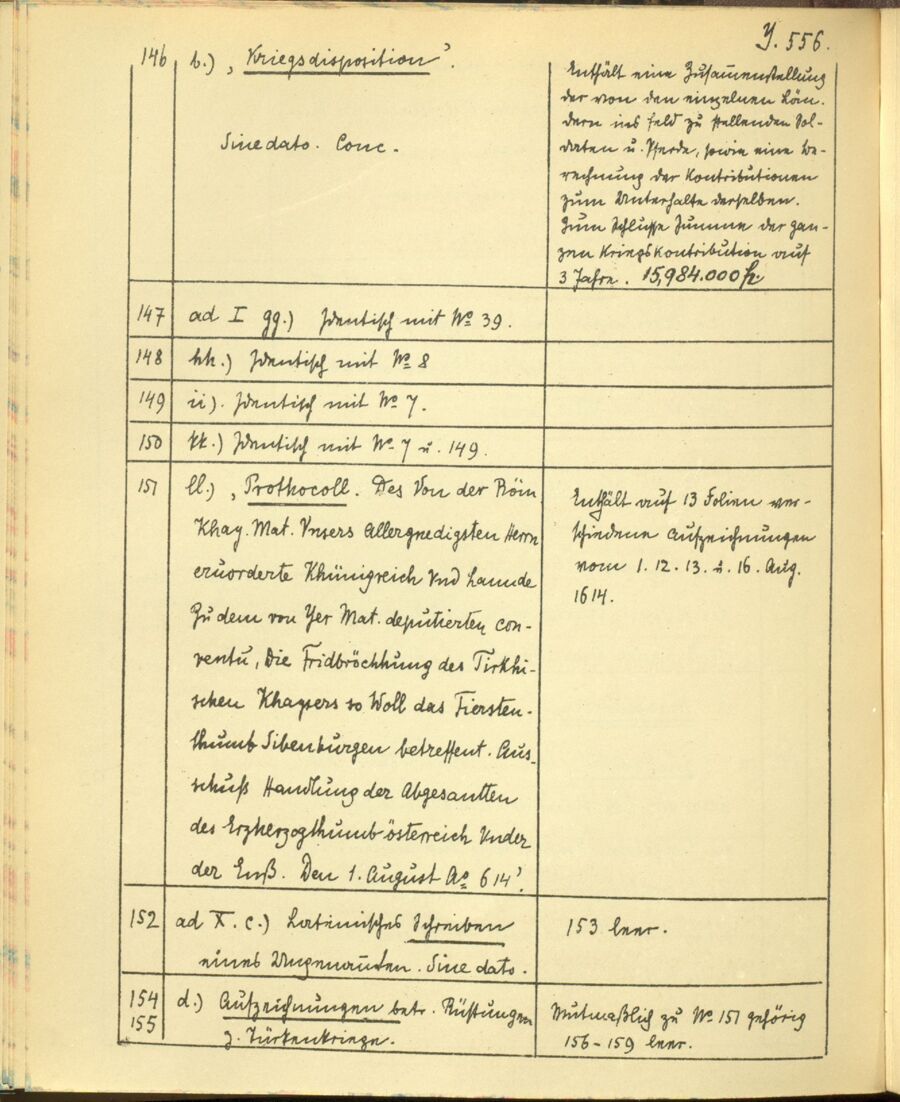 Y. 556.
146 b.) „Kriegsdisposition“.
Sine dato. Conc.
Enthält eine Zusammenstellung
der von den einzelnen Län-
dern ins Feld zu stellenden Sol-
daten u. Pferde, sowie eine Be-
rechnung der Kontributionen
zum Unterhalte derselben.
Zum Schlusse Summe der gan-
zen Kriegskontribution auf
3 Jahre. 15,984.000 fl.
147 ad I gg.) Identisch mit No 39.
148 hh.) Identisch mit No 8
149 ii). Identisch mit No 7.
150 kk.) Identisch mit No 7 u. 149.
151 ll.) „Prothocoll. Des Von der Röm
Khay. Mat. Vnsers Allergnedigsten Herrn
eruorderte Khünigreich Vnd Lannde
Zu dem von Yer Mat. deputierten con-
ventu, Die Fridbröchhung des Tirkhi-
schen Khaysers so Woll das Fiersten-
thumb Sibenburgen betreffent. Aus-
schuß Handlung der Abgesantten
des Erzherzogthumb österreich Vnder
der Enß. Den 1. August Ao 614“.
Enthält auf 13 Folien ver-
schiedene Aufzeichnungen
vom 1. 12. 13. u. 16. Aug.
1614.
152 ad X. c.) Lateinisches Schreiben
eines Ungenannten. Sine dato.
153 leer.
154 d.) Aufzeichnungen betr. Rüstungen
155 z. Türkenkriege.
Mutmaßlich zu No 151 gehörig
156-159 leer.